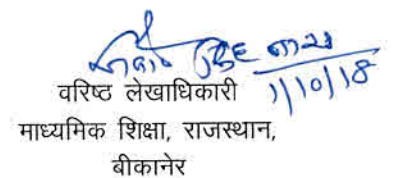 1/10/18
वरिष्ठ लेखाधिकारी
माध्यमिक शिक्षा, राजस्थान,
बीकानेर